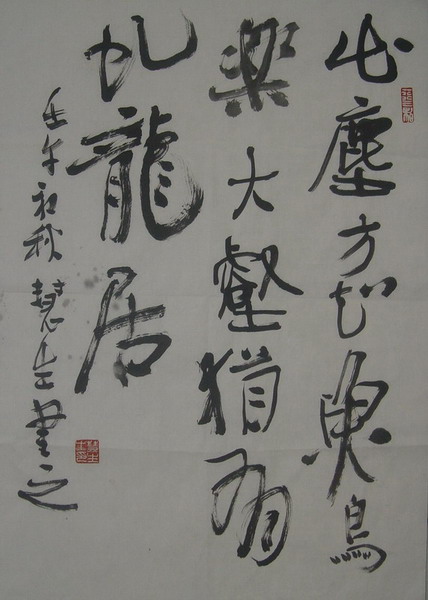 出塵方知魚鳥
樂大壑猶有
虬龍居
壬午初秋慧生書之